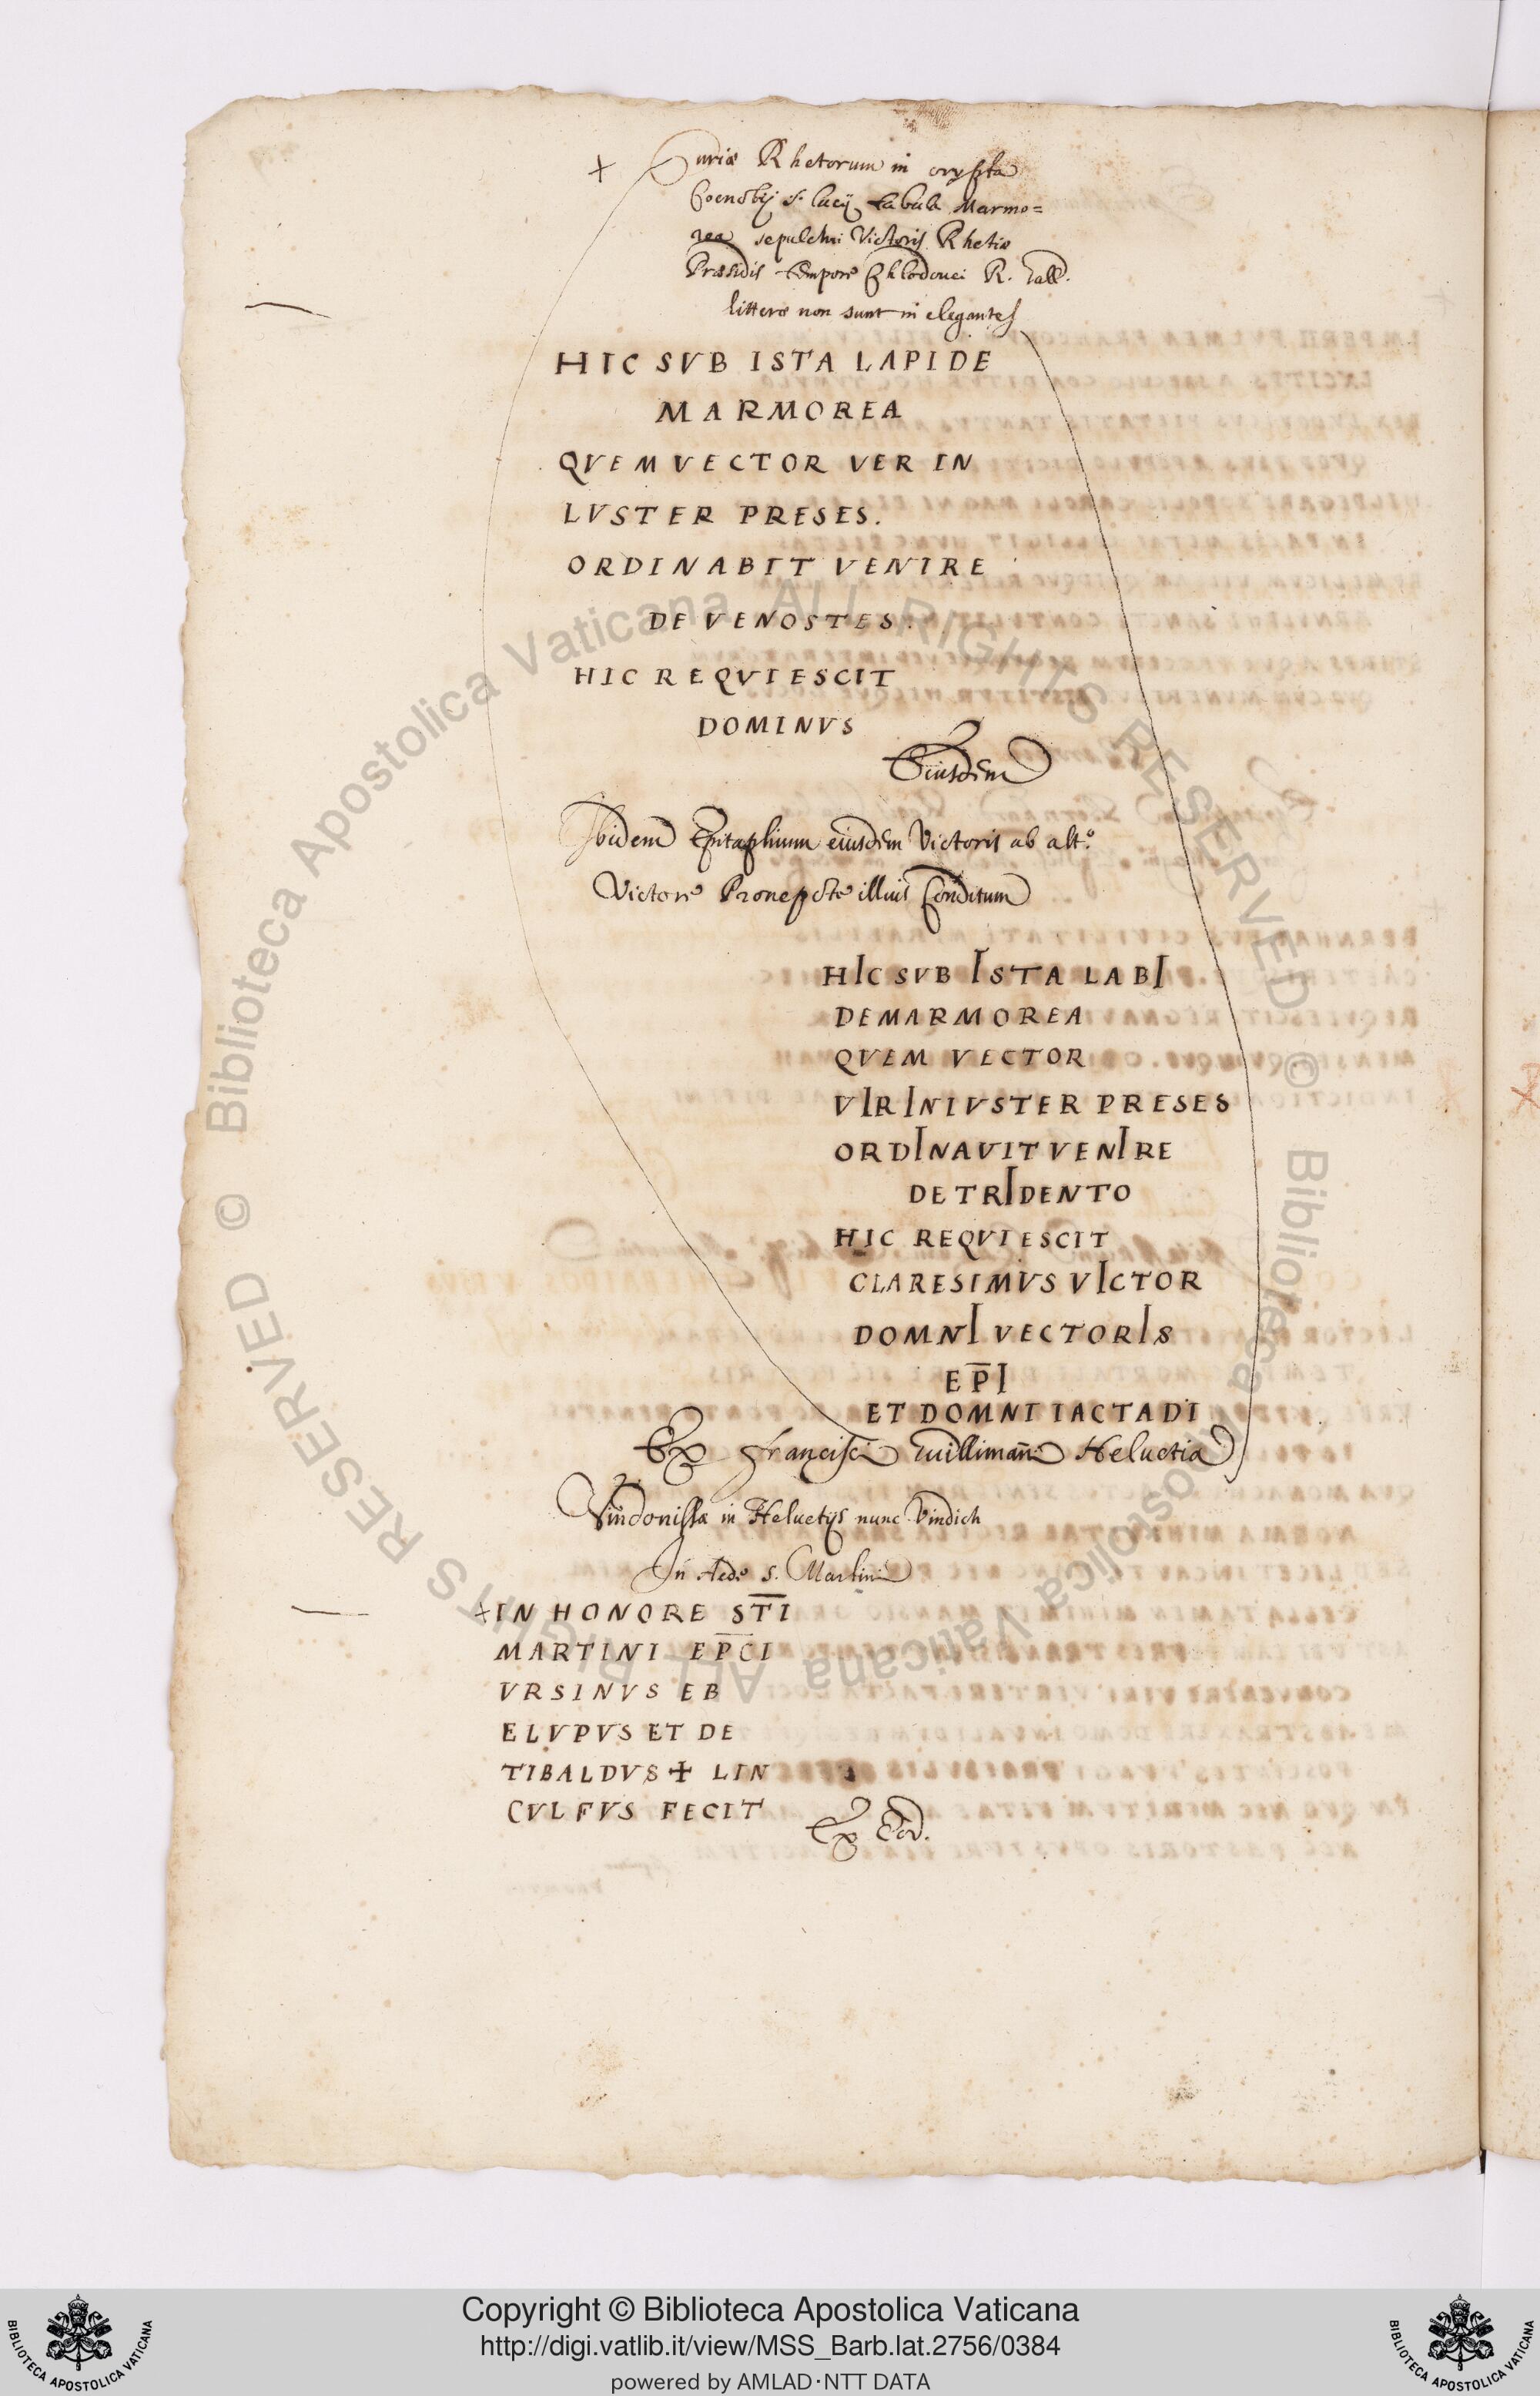 + Curiæ Rhetorum in crypta
Coenobij S. Lucij tabula Marmo=
rea sepulchri Victoris Rhetiæ
Præsidis tempore Chlodouei R. Gall.
litteræ non sunt inelegantes
HIC SVB ISTA LAPIDE
MARMOREA
QVEM VECTOR VER IN
LVSTER PRESES.
ORDINABIT VENIRE
DE VENOSTES.
HIC REQVIESCIT
DOMINVS
Eiusdem
Ibidem Epitaphium eiusdem Victoris ab alt.º
Victore Pronepote illius Conditum
HIC SVB ISTA LABI
DEMARMOREA
QVEM VECTOR
VIRINIVSTER PRESES
ORDINAVIT VENIRE
DE TRIDENTO
HIC REQVIESCIT
CLARESIMVS VICTOR
DOMNI VECTORIS
EP̅I
ET DOMNI IACTADI
Ex Francisci Guillimanni Heluetia
Vindonissæ in Heluetijs nunc Vindich
In Aede S. Martini
+IN HONORE ST̅I
MARTINI EP̅CI
VRSINVS EB
ELVPVS ET DE
TIBALDVS + LIN
CVLFVS FECIT
Ex Eod.
© Biblioteca Apostolica Vaticana ALL RIGHTS RESERVED © Biblioteca Apostolica Vaticana ALL RIGHTS RESERVED
Copyright © Biblioteca Apostolica Vaticana
http://digi.vatlib.it/view/MSS_Barb.lat.2756/0384
powered by AMLAD·NTT DATA
BIBLIOTECA APOSTOLICA VATICANA
BIBLIOTECA APOSTOLICA VATICANA